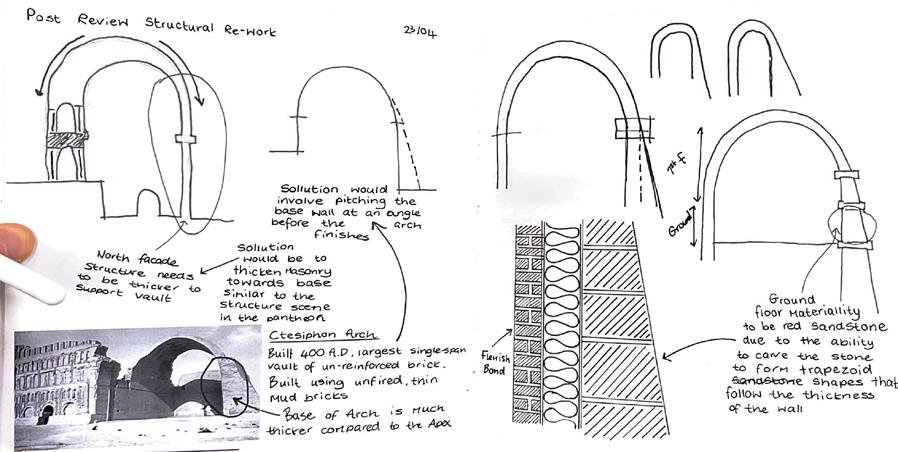 Post Review Structural Re-work
23/04
North facade
structure needs
to be thicker to
support vault
Solution
would be to
thicken masonry
towards base
similar to the
structure scene
in the pantheon
Sollution would
involve pitching the
base wall at an angle
before the arch
finishes
Ctesiphon Arch
Built 400 A.D. largest single-span
vault of un-reinforced brick.
Built using unfired, thin
Mud bricks
Base of Arch is Much
thicker compared to the Apex
Ground
Flemish
Bond
Ground
floor Materiallity
to be red sandstone
due to the ability
to carve the stone
to form trapezoid
sandstone shapes that
follow the thickness
of the wall